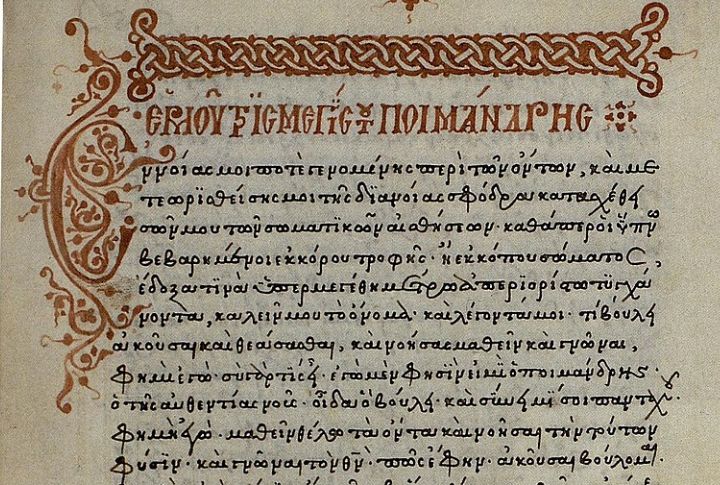 ἙΡΜΟῦ ΤΡΙΣΜΕΓΙΣΤΟΥ ΠΟΙΜΆΝΔΡΗΣ
Ἐννοίας μοι ποτὲ γενομένης περὶ τῶν ὄντων, καὶ με
τεωρισθείσης μοι τῆς διανοίας σφόδρα κατασχεθει
σῶν μου τῶν σωματικῶν αἰσθήσεων· καθάπερ οἱ ὕπνω
βεβαρημένοι ἐκ κόρου τροφῆς· ἢ ἐκ κόπου σώματος,
ἔδοξα τινὰ ὑπερμεγέθη μέτρω ἀπεριορίστω τυγχά
νοντα, καλεῖν μου τὸ ὄνομα· καὶ λέγοντά μοι· τί βούλει
ἀκοῦσαι καὶ θεάσασθαι, καὶ νοήσας μαθεῖν καὶ γνῶναι,
φημὶ ἐγώ· σὺ γὰρ τίς εἶ· ἐγὼ μὲν φησὶν εἰμὶ ὁ ποιμάνδρης·
ὁ τῆς αὐθεντίας νοῦς· οἶδα ὃ βούλει· καὶ σύνειμί σοι πανταχοῦ·
φημὶ ἐγώ· μαθεῖν θέλω τὰ ὄντα καὶ νοῆσαι τὴν τούτων
φύσιν· καὶ γνῶναι τὸν θν· πῶς ἔφην· ἀκοῦσαι βούλομαι